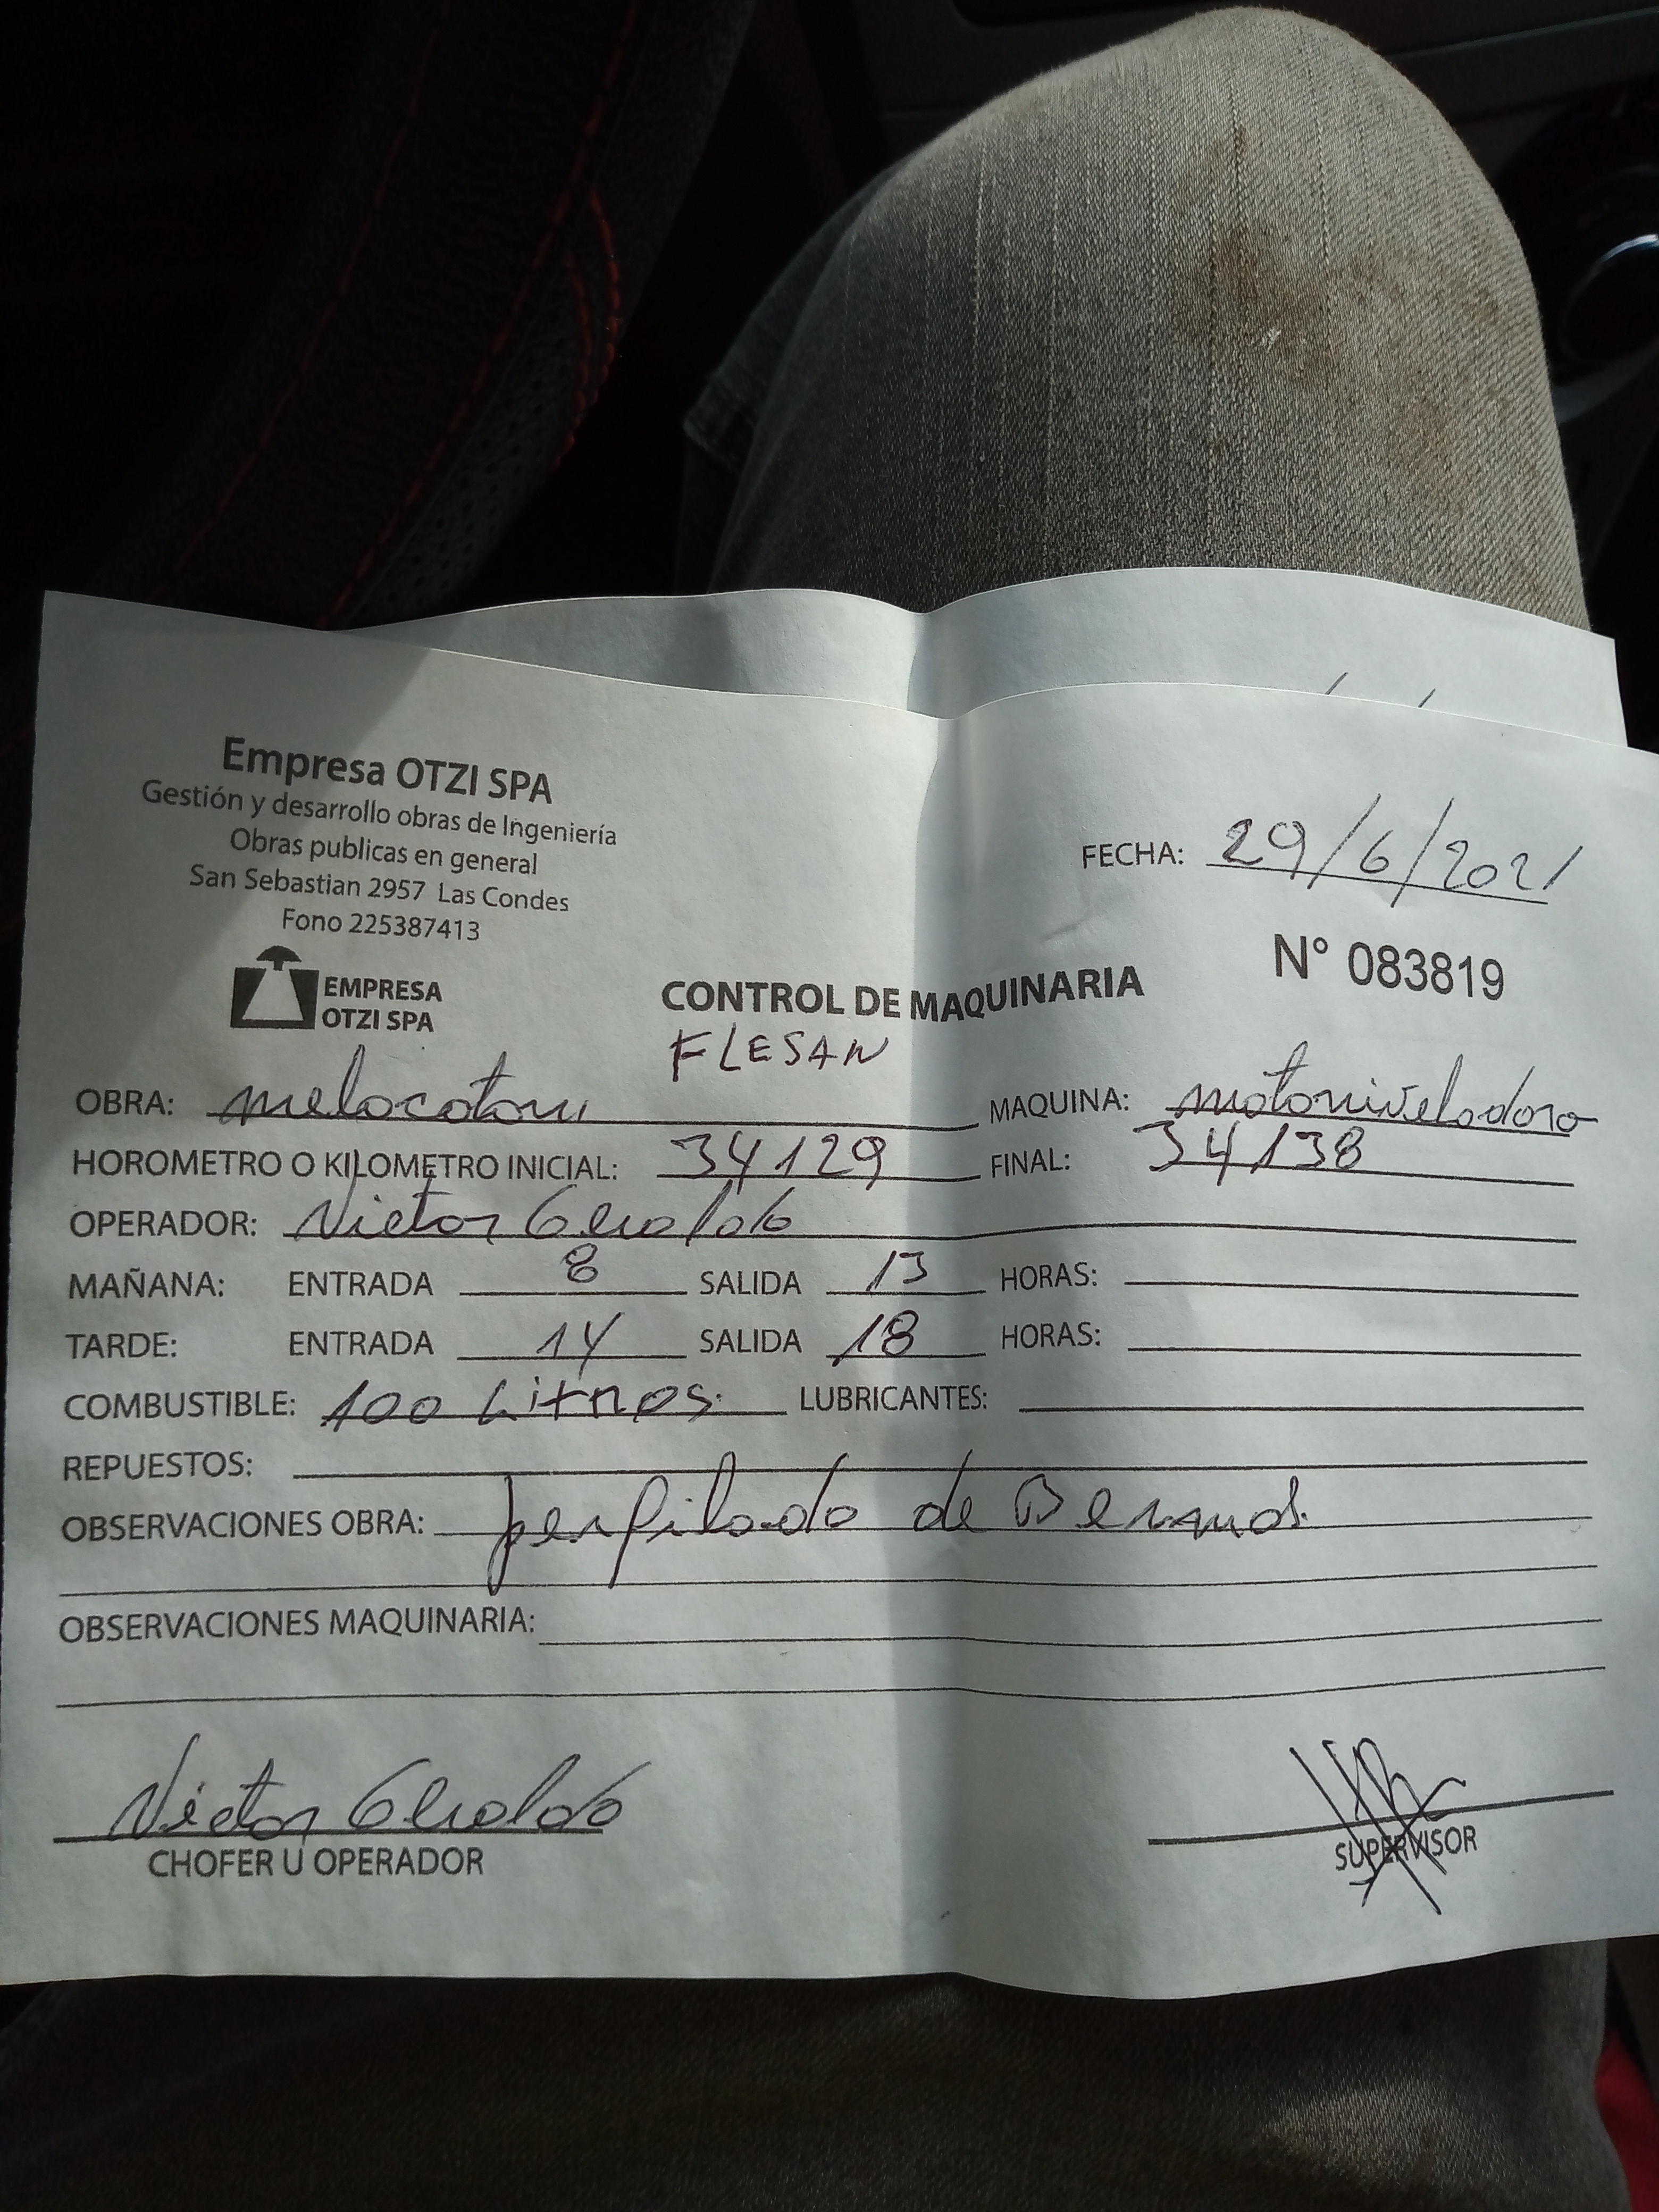 Empresa OTZI SPA
Gestión y desarrollo obras de Ingeniería
Obras publicas en general
San Sebastian 2957 Las Condes
Fono 225387413
EMPRESA
OTZI SPA
FECHA: 29/6/2021
N° 083819
CONTROL DE MAQUINARIA
FLESAN
OBRA: melocoton MAQUINA: motoniveladora
HOROMETRO O KILOMETRO INICIAL: 34129 FINAL: 34138
OPERADOR: Victor
MAÑANA: ENTRADA 8 SALIDA 13 HORAS:
TARDE: ENTRADA 14 SALIDA 18 HORAS:
COMBUSTIBLE: 100 Litros. LUBRICANTES:
REPUESTOS:
OBSERVACIONES OBRA: perfilado de
OBSERVACIONES MAQUINARIA:
Victor
CHOFER U OPERADOR
SUPERVISOR